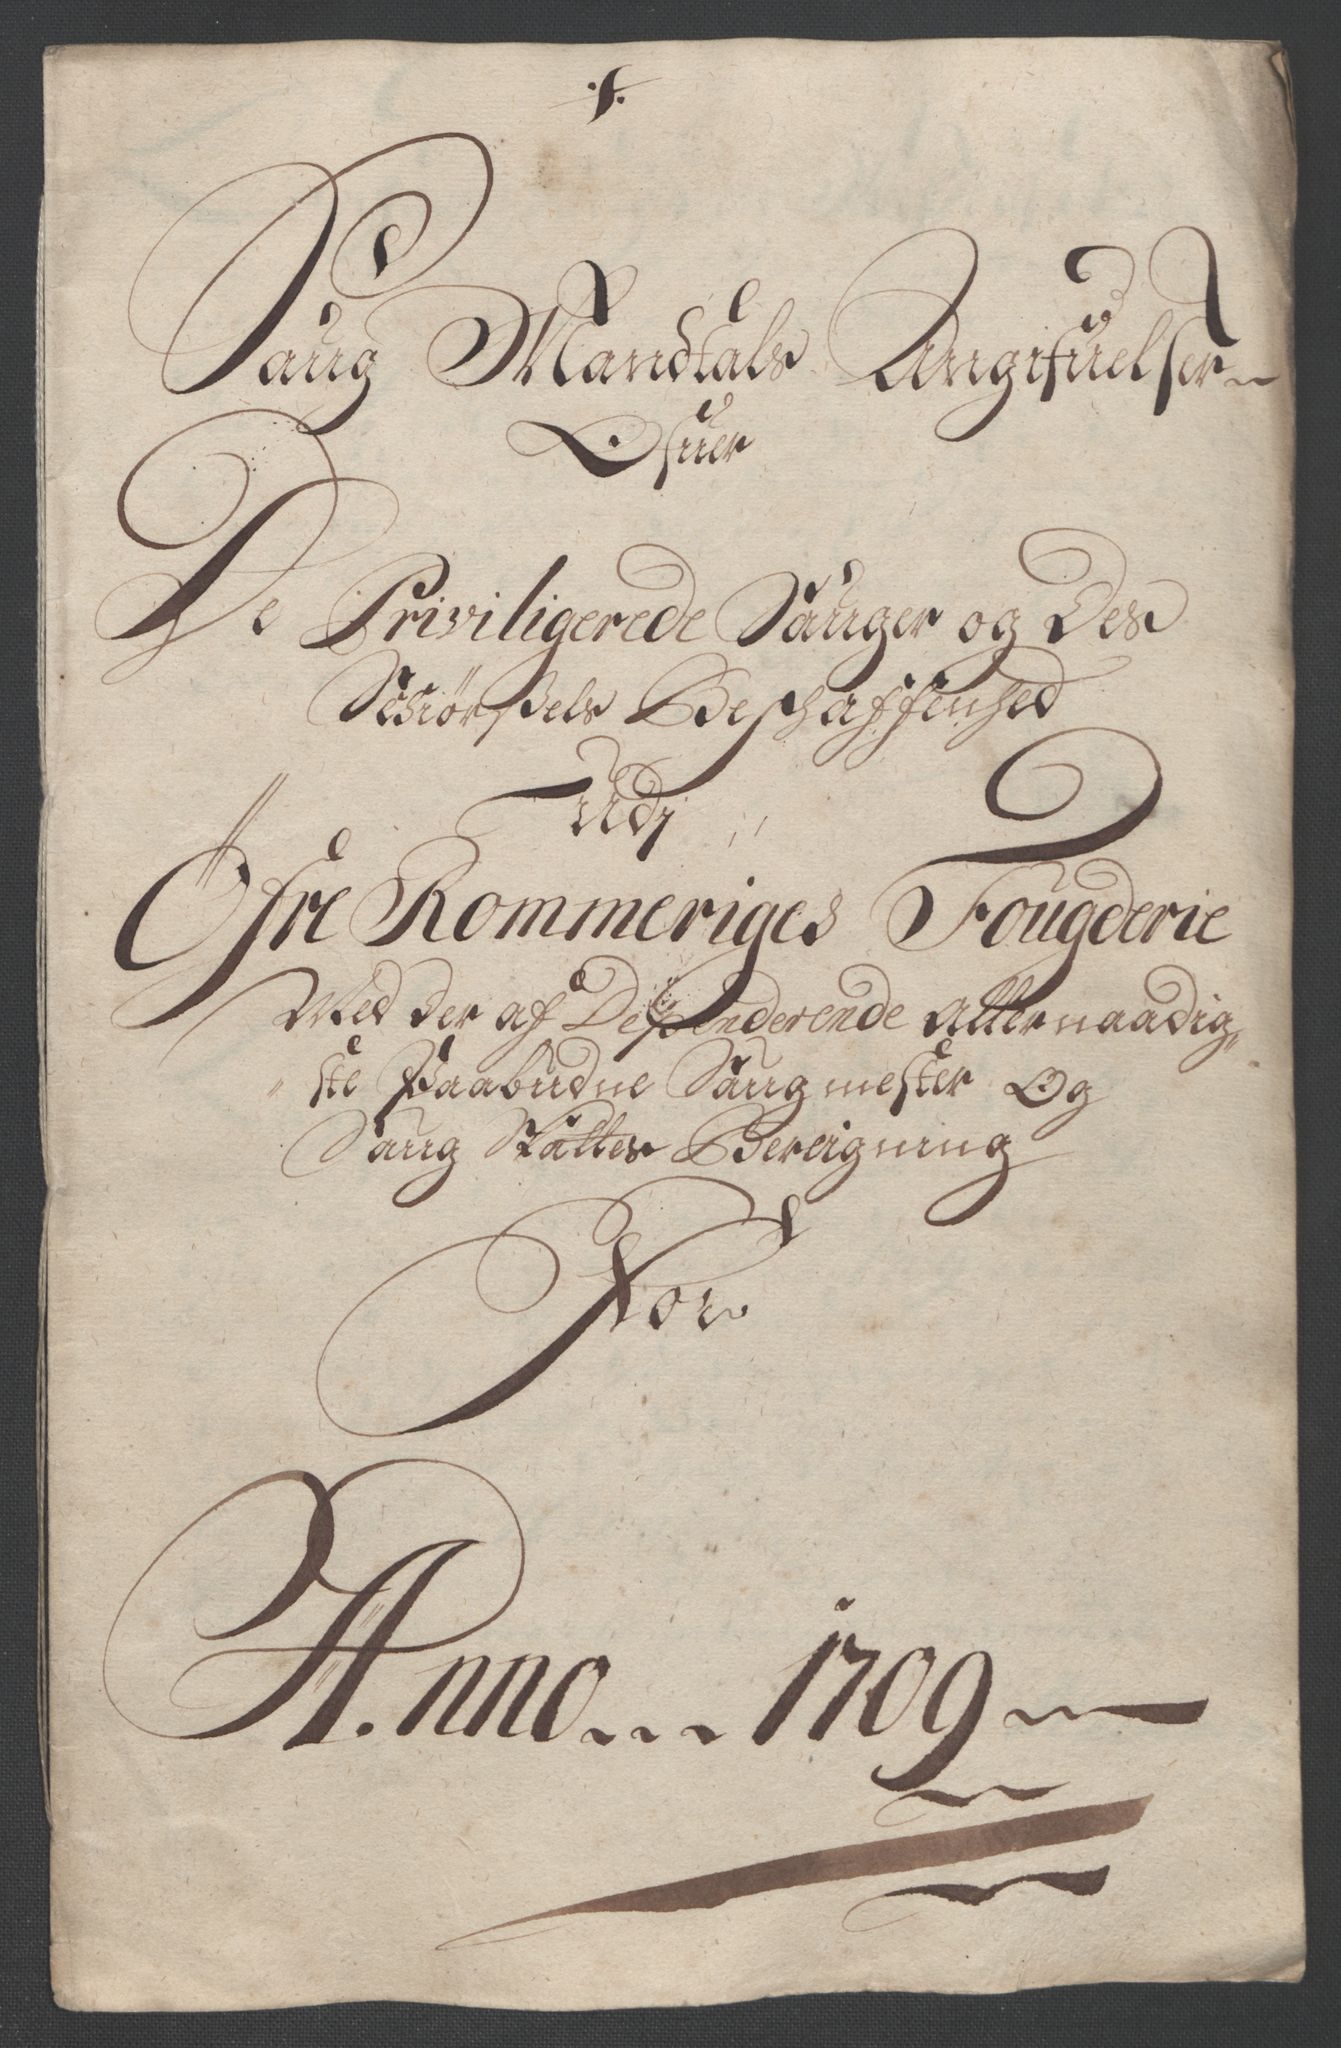 ·1·
Saug Mandtals Angifuelser
Ofuer
De Priviligerede Sauger og Des
Schiørßels Beschaffenhed
Udj
Öfre Rommeriges Fougderie
Med der af Dependerende allernaadig„
„ste Paabudne Saugmester Og
Saug Skattes Beregning
For
A.nno 1709